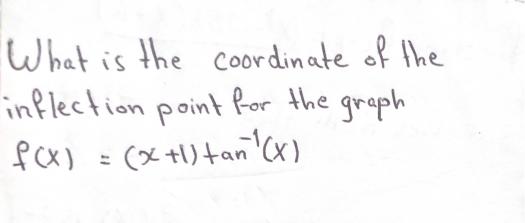 What is the coordinate of the
inflection point for the graph
f(x) = (x+1) tan⁻¹(x)